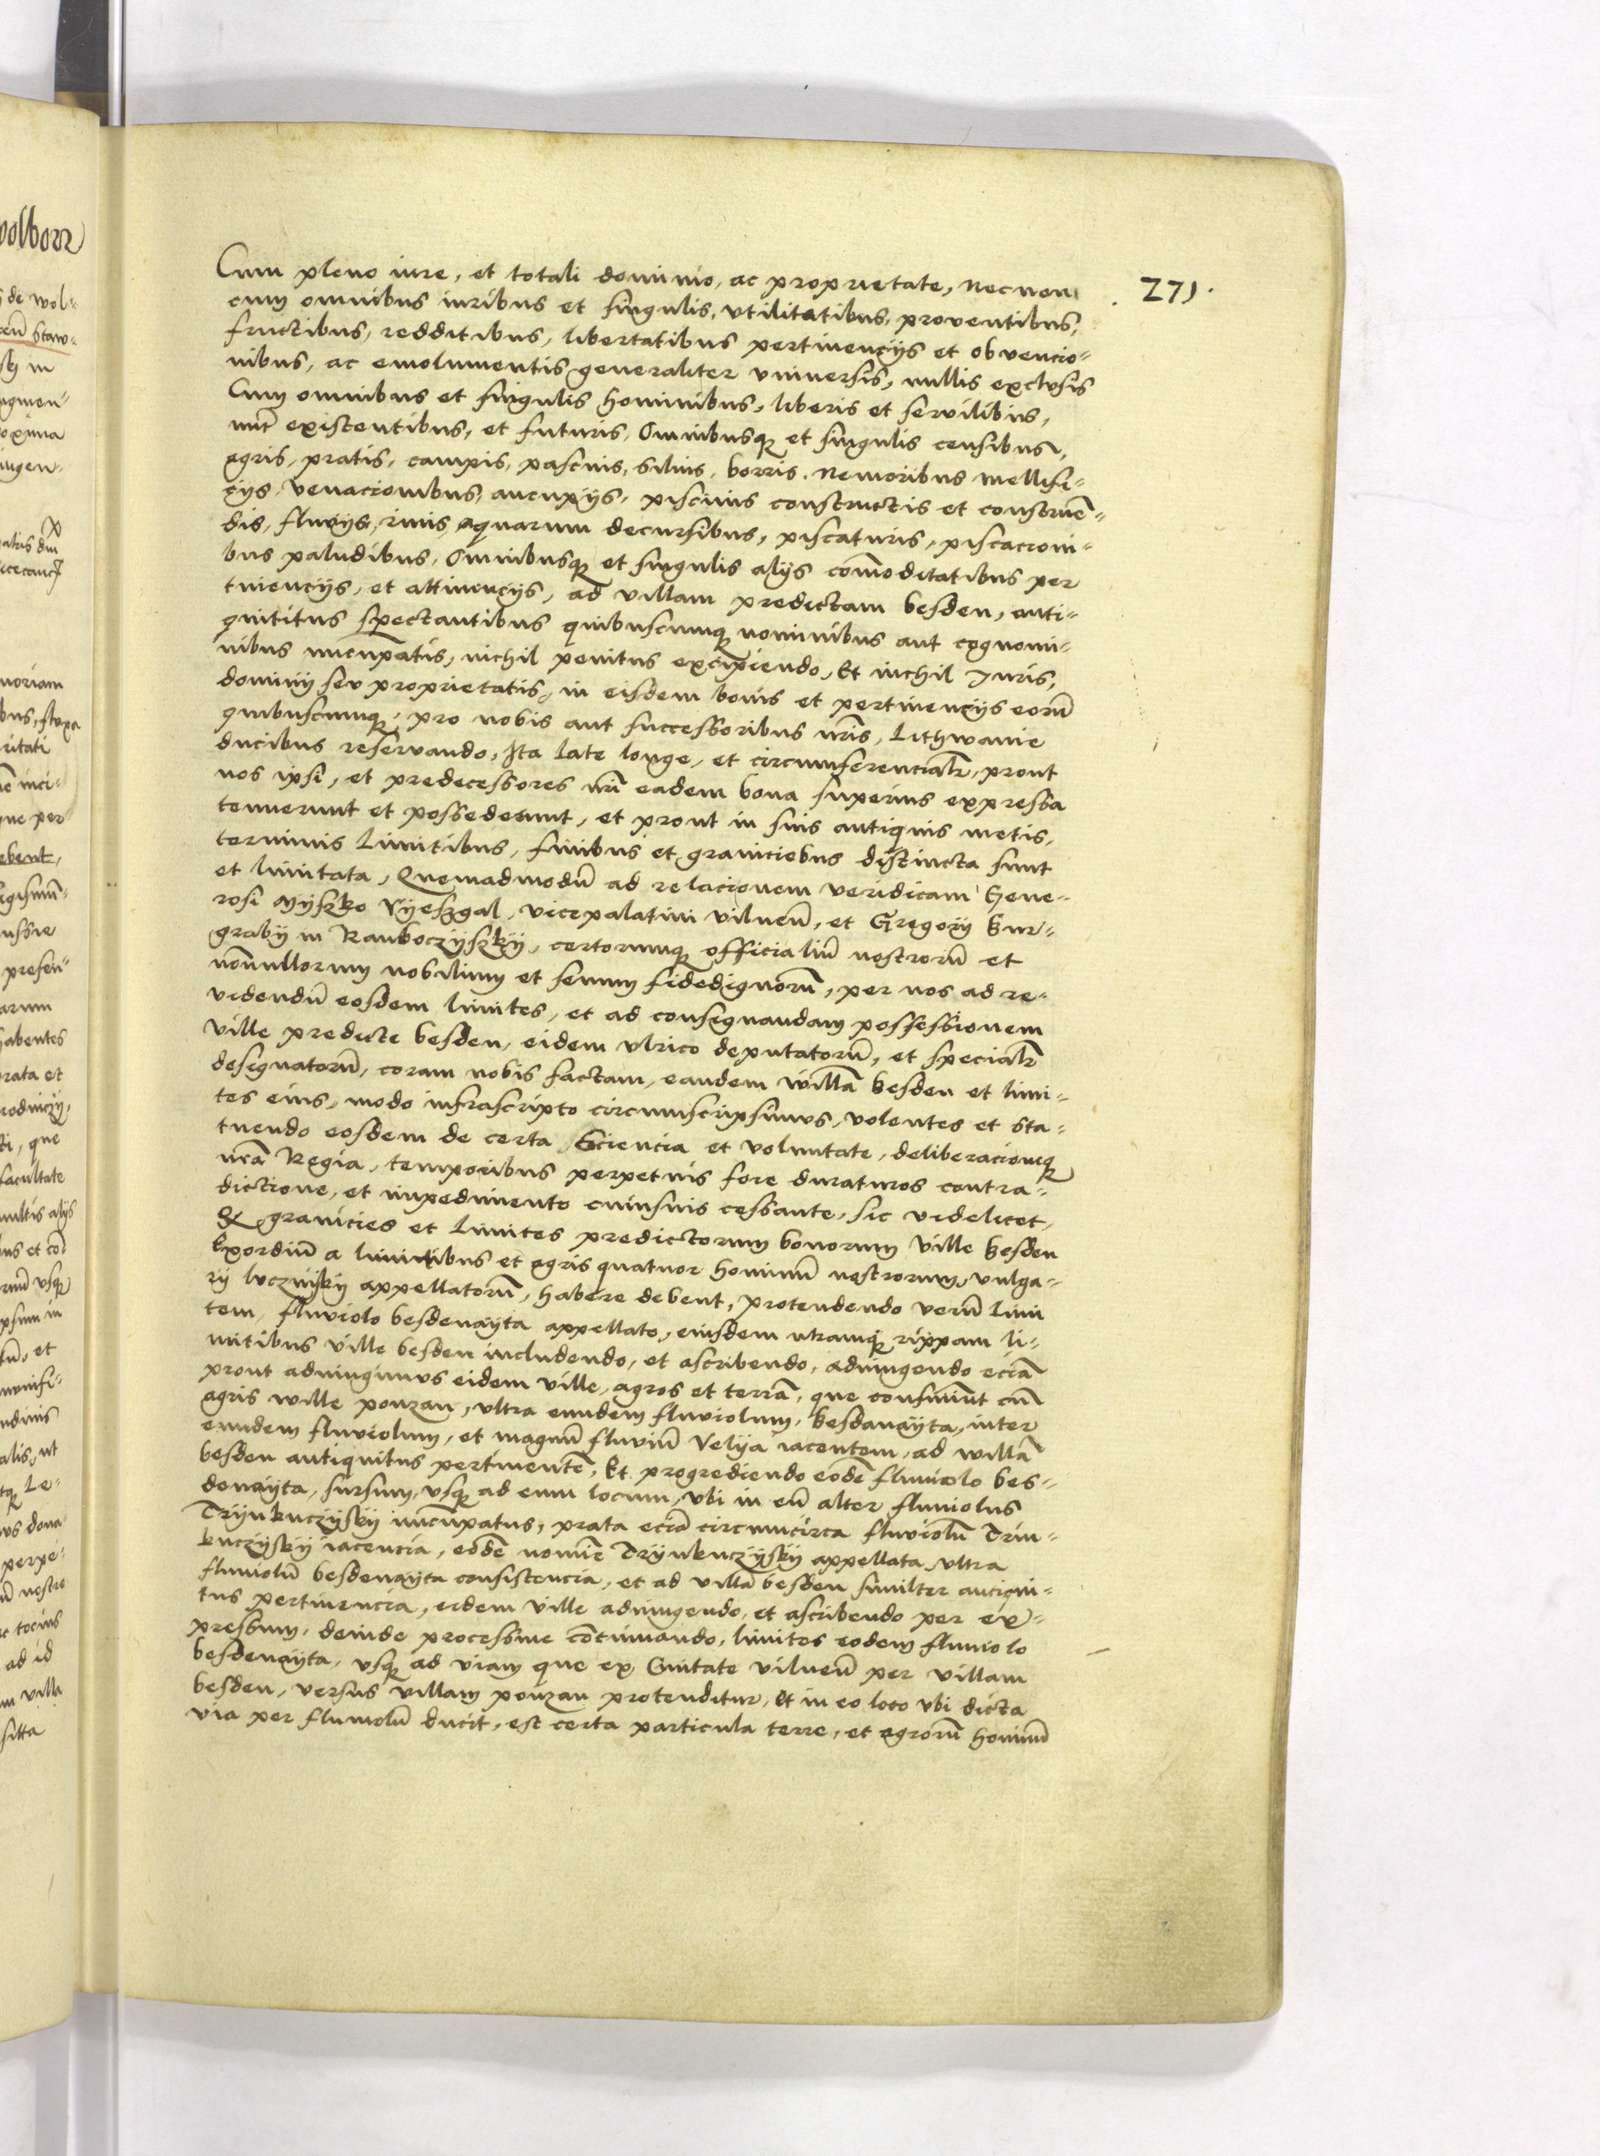 271.
Cum pleno iure, et totali dominio, ac proprietate, necnon
cum omnibus iuribus et singulis, utilitatibus, proventibus,
fructibus, redditibus, libertatibus pertinencijs et obvencio-
nibus, ac emolumentis generaliter universis, nullis exclusis
Cum omnibus et singulis hominibus, liberis et servilibus,
nunc existentibus, et futuris, Omnibusq et singulis censibus,
agris, pratis, campis, pascuis, silvis, borris, nemoribus mellifi-
cijs, venacionibus, aucupijs, piscinis constructis et construen-
dis, fluvijs, rivis, aquarum decursibus, piscaturis, piscacioni-
bus paludibus, Omnibusq et singulis alijs comoditatibus per
tinencijs, et attinencijs, ad villam predictam besden, anti-
quititus spectantibus quibuscumq nominibus aut cognomi-
nibus nuncupatis, nichil penitus excipiendo, Et nichil Iuris,
dominij seu proprietatis, in eisdem bonis et pertinencijs eorum
quibuscumq, pro nobis aut successoribus nris, Lithwanie
ducibus reservando, Ita late longe, et circumferencialr, prout
nos ipsi, et predecessores nri eadem bona superius expressa
tenuerunt et possederunt, et prout in suis antiquis metis,
terminis Limitibus, finibus et graniciebus distincta sunt
et limitata, Quemadmodum ad relacionem veridicam Gene-
rosi Myszko Vyeszgal, vicepalatini vilnen, et Gregorij Bur-
grabij in Rauboczyszkij, certorumq officialium nostrorum et
nonnullorum nobilium et senum fidedignorum, per nos ad re-
videndum eosdem limites, et ad consignandam possessionem
ville predicte besden, eidem ulrico deputatorum, et specialr
designatorum, coram nobis factam, eandem willam besden et limi-
tes eius, modo infrascripto circumscripsimus, volentes et sta-
tuendo eosdem de certa Sciencia et voluntate, deliberacioneq
nra Regia, temporibus perpetuis fore duraturos contra-
dictione, et impedimento cuiusuis cessante, sic videlicet,
Q granicies et limites predictorum bonorum ville besden
Exordium a limitibus et agris quatuor hominum nostrorum, vulga-
rij luczniky appellatorum, habere debent, protendendo verum limi
tem, fluviolo besdenayta appellato, eiusdem utramq rippam li-
mitibus ville besden includendo, et ascribendo, adiungendo eciam
prout adiungimus eidem ville, agros et terram, que confiniunt cum
agris wille ponzan, ultra eundem fluviolum, besdanayta, inter
eundem fluviolum, et magnum fluvium Velya iacentem, ad willam
besden antiquitus pertinentem, Et progrediendo eodem fluviolo bes-
denayta, sursum, usq ad eum locum, ubi in eum alter fluviolus
Drynkuczyskij nuncupatus, prata eciam circumcirca fluviolum Drin-
kuczyskij iacencia, eodem nomine Drynkuczyskij appellata, ultra
fluviolum besdenayta consistencia, et ad villam besden similiter antiqui-
tus pertinencia, eidem ville adiungendo, et ascribendo per ex-
pressum, deinde processive continuando, limites eodem fluviolo
besdenayta, usq ad viam que ex Civitate vilnen per villam
besden, versus villam ponzan protenditur, Et in eo loco ubi dicta
via per fluviolum ducit, est certa particula terre, et agrorum hominum